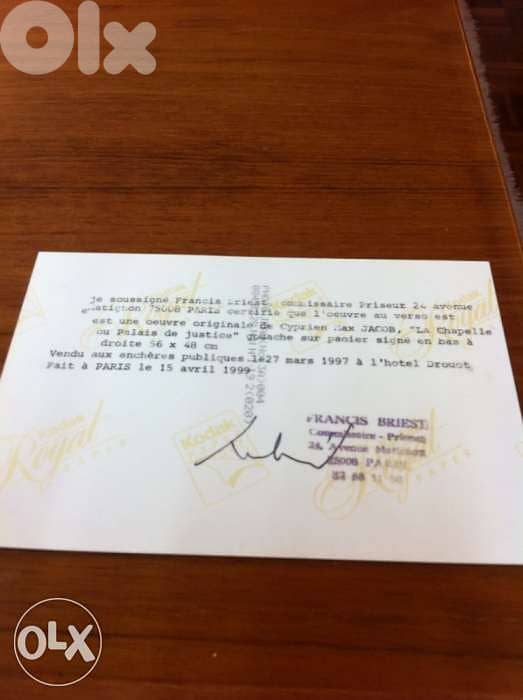 OLX
je soussigné Francis Briest, commissaire Priseur 24 avenue
75008 PARIS certifie que l'oeuvre au verso est
est une oeuvre originale de Cyprien Max JACOB, "La Chapelle
ou Palais de justice" gouache sur papier signé en bas à
droite 56 x 48 cm
Vendu aux enchères publiques le27 mars 1997 à l'hotel Drouot
Fait à PARIS le 15 avril 1999
FRANCIS BRIEST
Commissaire - Priseur
24, Avenue Matignon
75008 PARIS
Kodak
Royal
PAPER
Kodak
Royal
PAPER
OLX